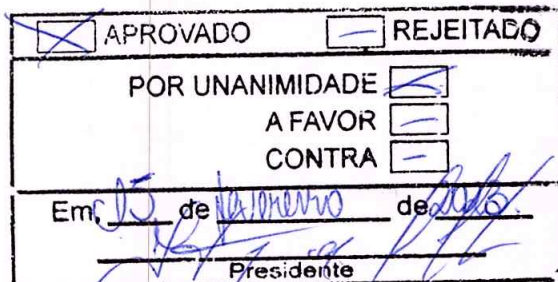 APROVADO REJEITADO
POR UNANIMIDADE
A FAVOR
CONTRA
Em, 15 de fevereiro de
Presidente